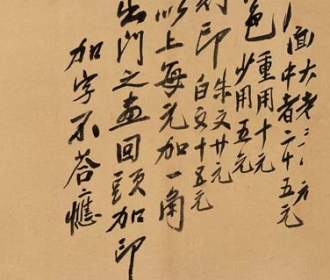 面大者
中者二十五元
色重用十元
少用五元
印朱文廿元
白文十五元
以上每元加一角
出門之畫回頭加印
加字不答應